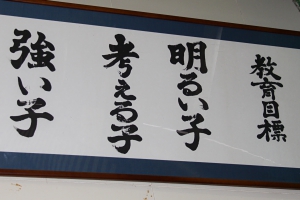 教育目標
明るい子
考える子
強い子